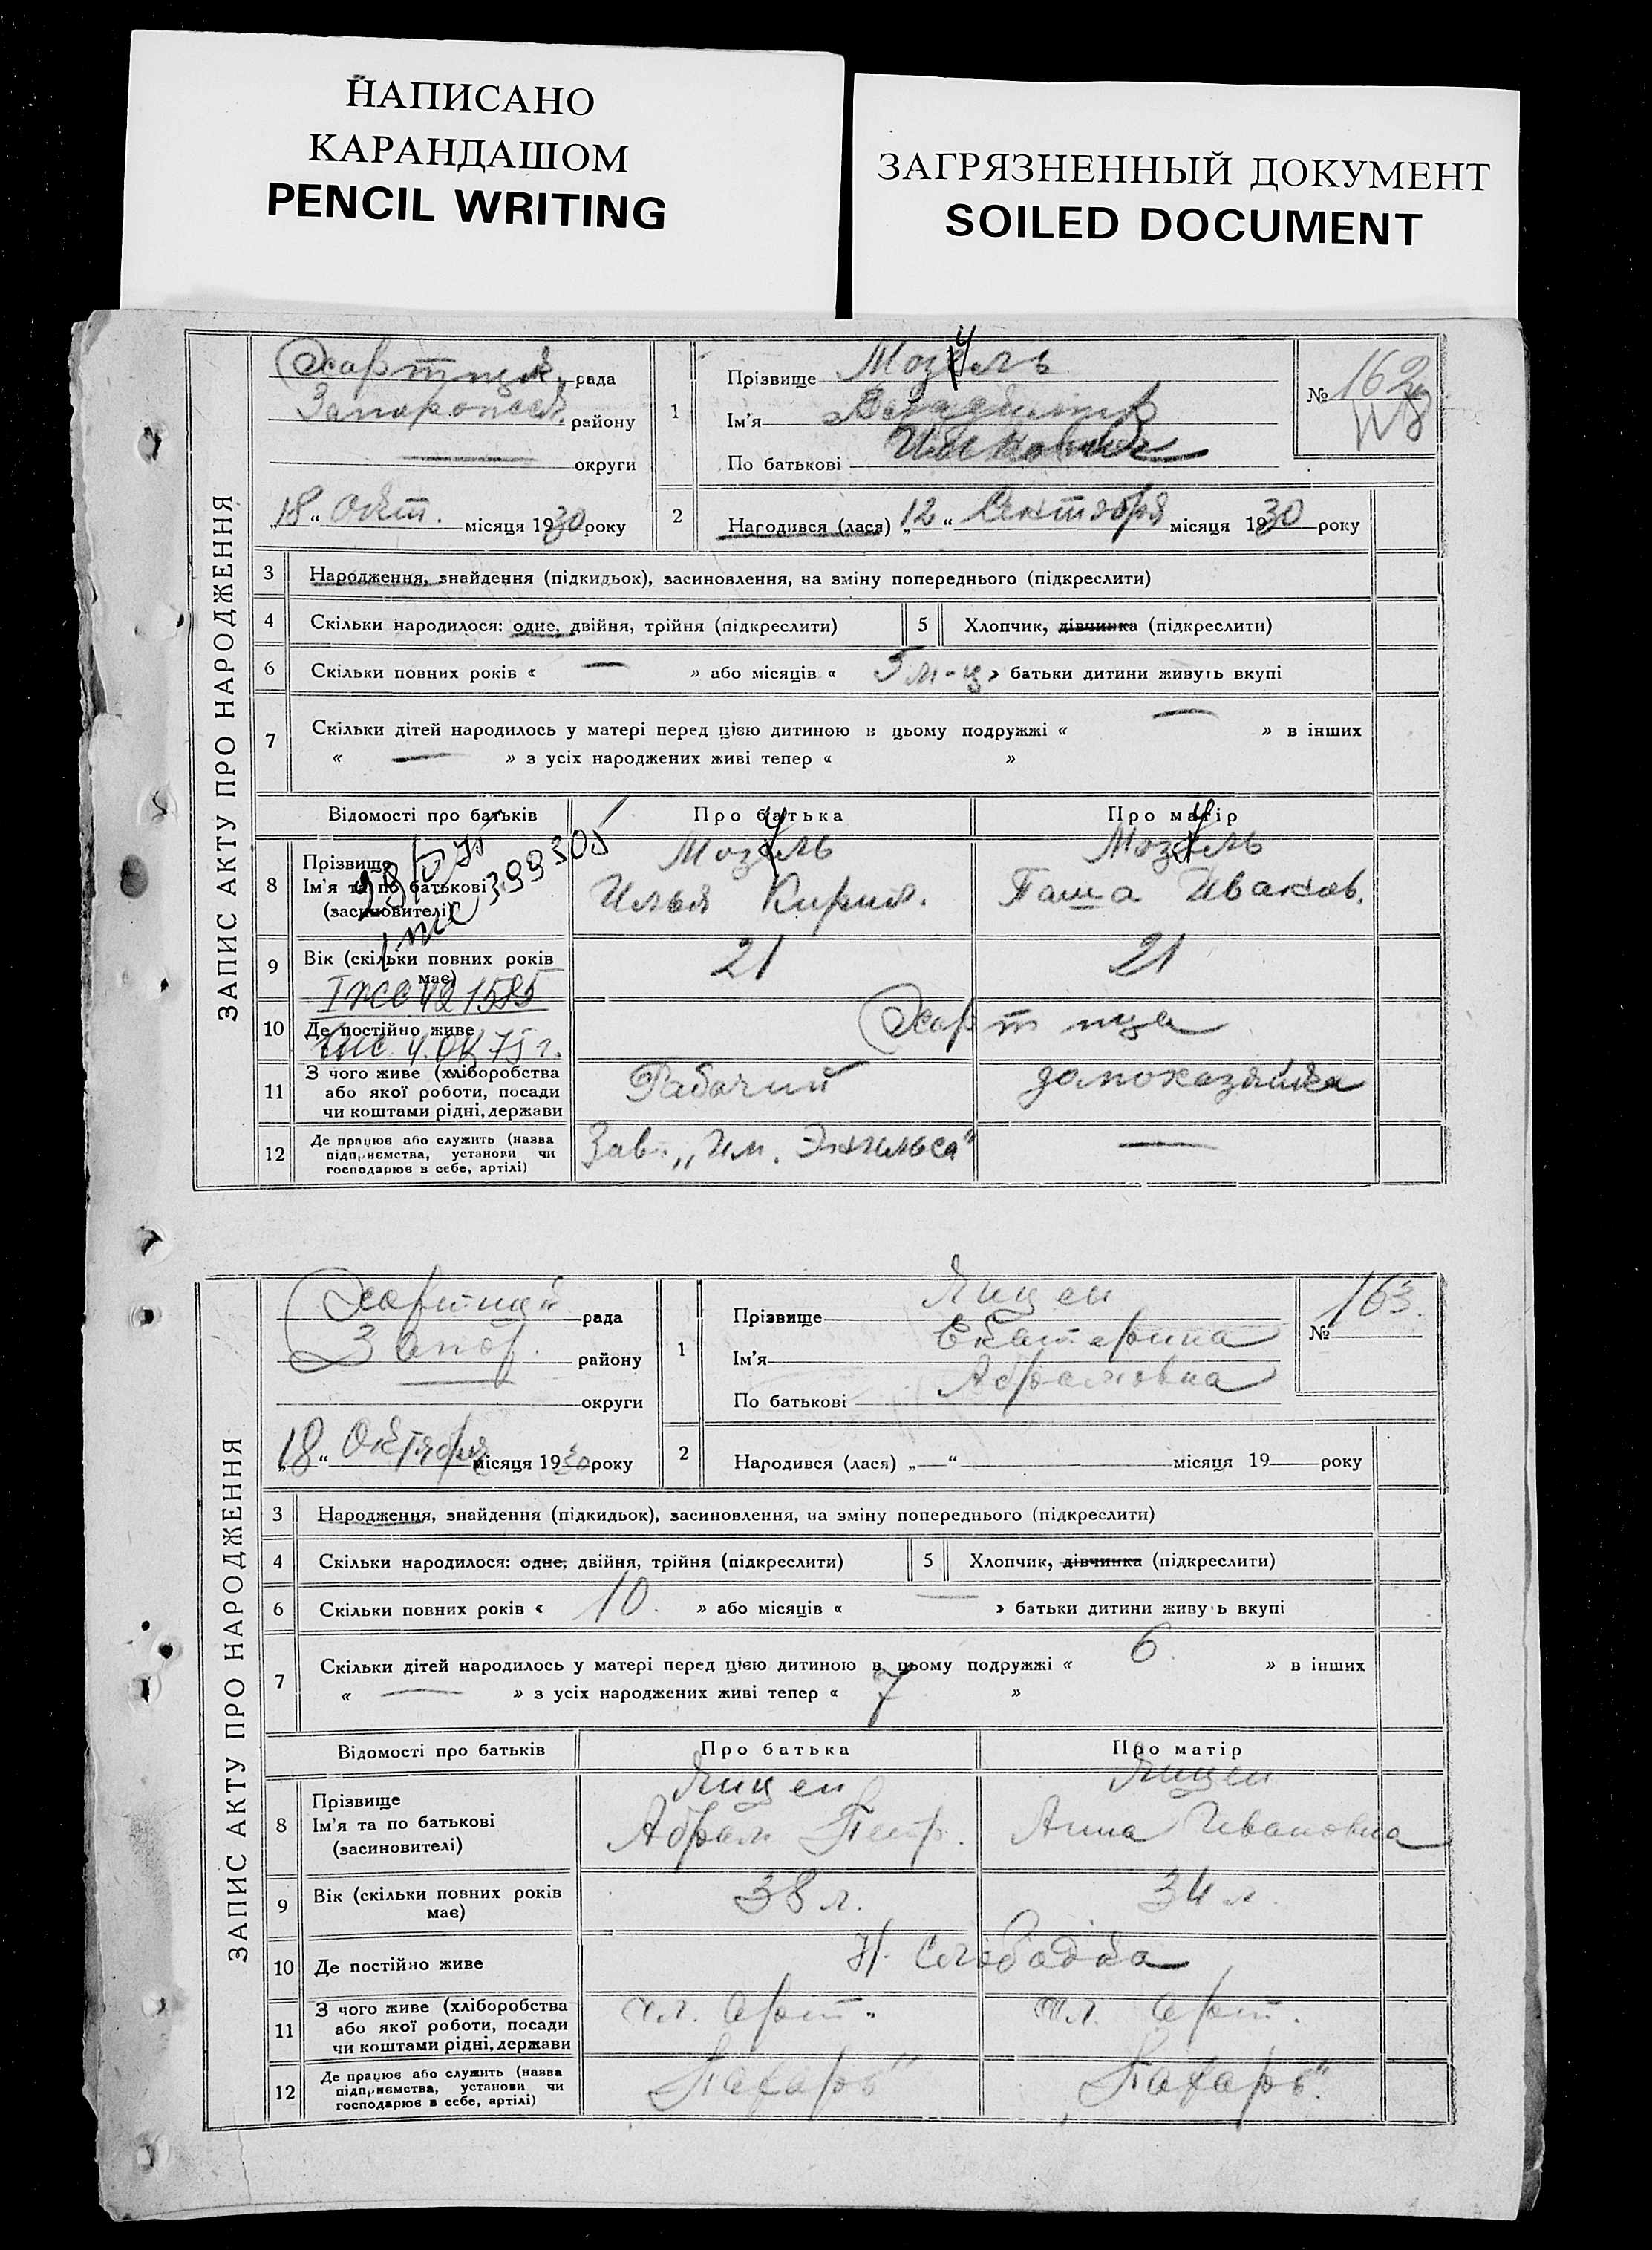 НАПИСАНО
КАРАНДАШОМ
PENCIL WRITING
ЗАГРЯЗНЕННЫЙ ДОКУМЕНТ
SOILED DOCUMENT
ЗАПИС АКТУ ПРО НАРОДЖЕННЯ
Хортицк. рада
Запорожск. району
округи
„18“ Окт. місяця 1930 року
1
Прізвище Мозуль
Ім'я Владимир
По батькові Ильич
№ 162
2
Народився (лася) „12“ Сентября місяця 1930 року
3 Народження, знайдення (підкидьок), засиновлення, на зміну попереднього (підкреслити)
4 Скільки народилося: одне, двійня, трійня (підкреслити)
5 Хлопчик, дівчинка (підкреслити)
6 Скільки повних років « — » або місяців « 5 м-ц » батьки дитини живуть вкупі
7 Скільки дітей народилось у матері перед цією дитиною в цьому подружжі « — » в інших
« — » з усіх народжених живі тепер « »
Відомості про батьків Про батька Про матір
8 Прізвище
Ім'я та по батькові
(засиновителі)
399305
Мозуль
Илья Кирил.
Мозуль
Паша Иваков.
9 Вік (скільки повних років має) 21 21
1585
10 Де постійно живе Хортица
75 г.
11 З чого живе (хліборобства
або якої роботи, посади
чи коштами рідні, держави
Рабочий домохазяйка
12 Де працює або служить (назва
підприємства, установи чи
господарює в себе, артілі)
Зав. „Им. Энгельса“ —
ЗАПИС АКТУ ПРО НАРОДЖЕННЯ
Хортицк рада
Запор. району
округи
„18“ Октября місяця 1930 року
1
Прізвище Янцен
Ім'я Екатерина
По батькові Абрамовна
№ 163.
2
Народився (лася) „ “ місяця 19 року
3 Народження, знайдення (підкидьок), засиновлення, на зміну попереднього (підкреслити)
4 Скільки народилося: одне, двійня, трійня (підкреслити)
5 Хлопчик, дівчинка (підкреслити)
6 Скільки повних років « 10. » або місяців « — » батьки дитини живуть вкупі
7 Скільки дітей народилось у матері перед цією дитиною в цьому подружжі « 6. » в інших
« — » з усіх народжених живі тепер « 7 »
Відомості про батьків Про батька Про матір
8 Прізвище
Ім'я та по батькові
(засиновителі)
Янцен
Абрам Петр.
Янцен
Анна Ивановна
9 Вік (скільки повних років має) 38 л. 34 л.
10 Де постійно живе Н. Слободка
11 З чого живе (хліборобства
або якої роботи, посади
чи коштами рідні, держави
чл. Арт. чл. Арт.
12 Де працює або служить (назва
підприємства, установи чи
господарює в себе, артілі)
„Пахарь“ „Пахарь“.